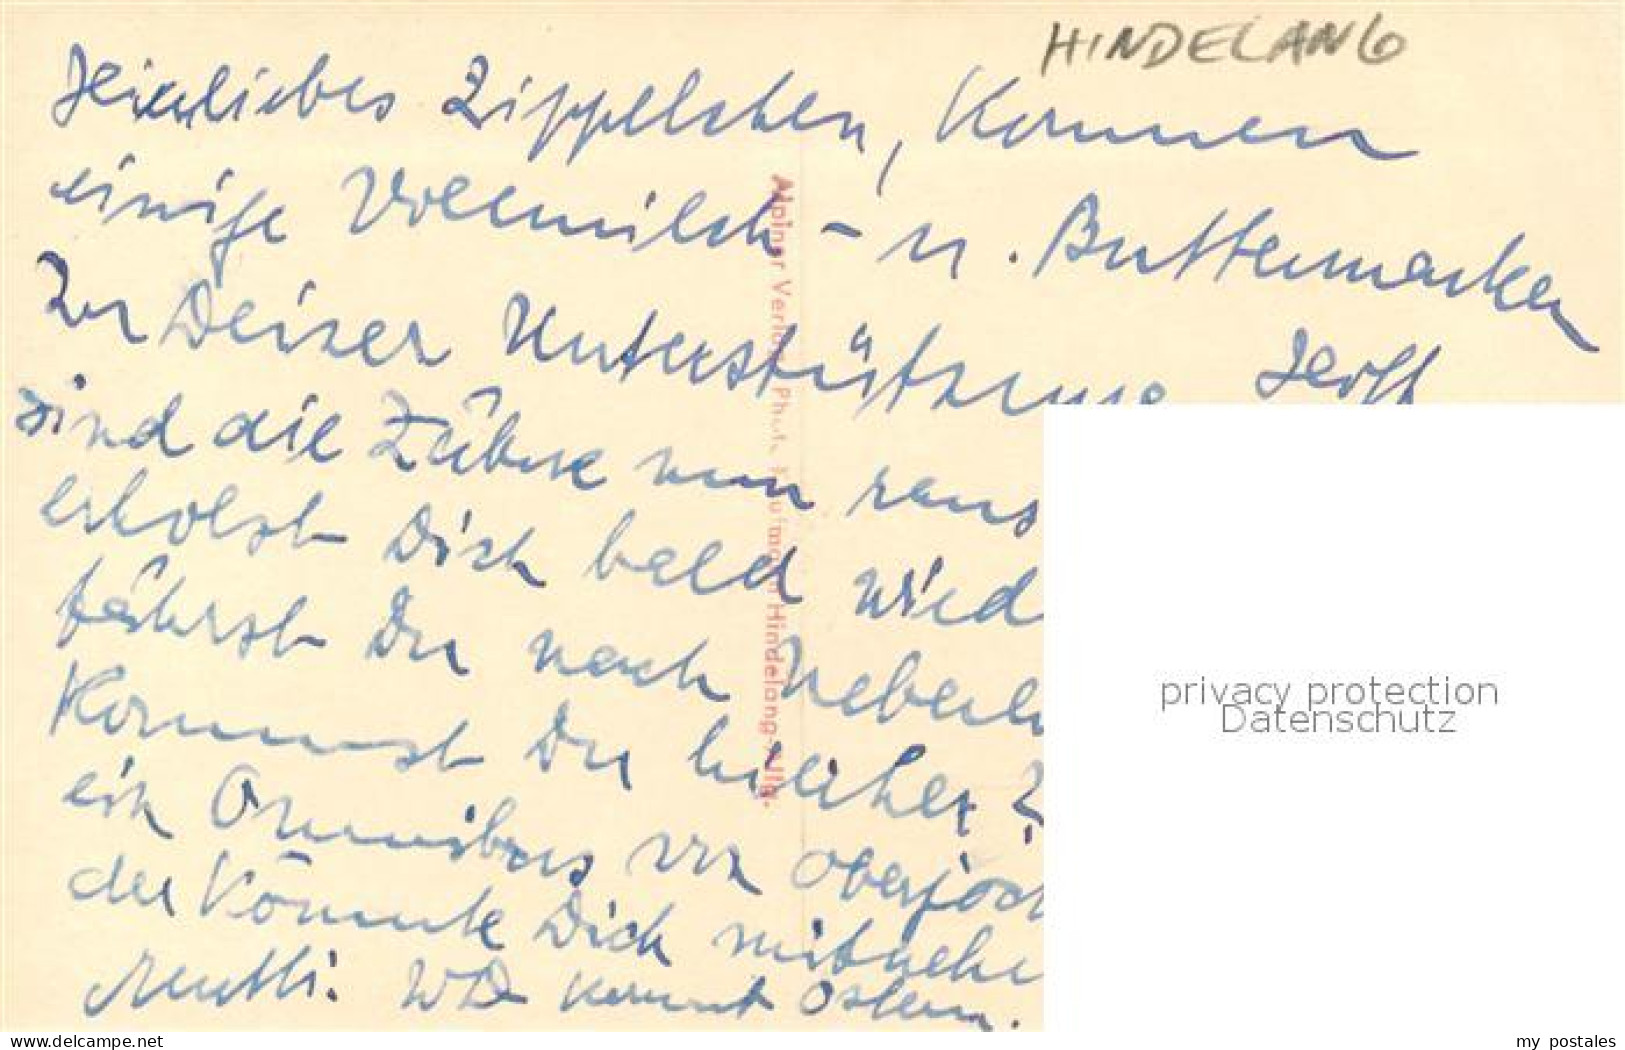 HINDELANG
Zippelchen, Kommen
einige Vollmilch- u. Buttermarken
Zu Deiner Unterstützung. Hoff
sind die Zähne nun raus
erholst Dich bald wied
fährst Du nach Ueberl
Kommst Du hierher?
ein Omnibus von Oberjoch
der Könnte Dich mitnehm
Mutti. Wo Kommt Ostern.
Alpiner Verlag Photo Kaufmann Hindelang-Allg.
privacy protection
Datenschutz
www.delcampe.net
my_postales